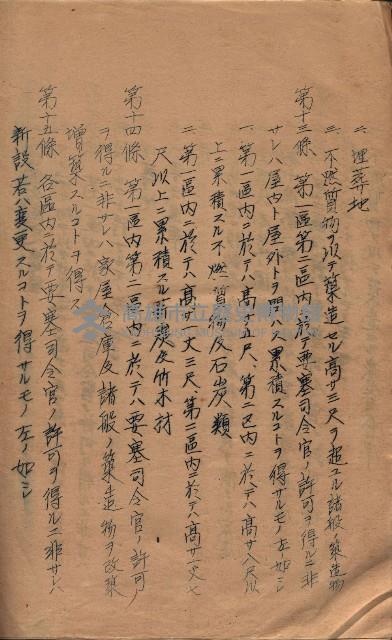 二、埋葬地
三、不燃質物ヲ以テ築造セル高サ三尺ヲ超ユル諸般ノ築造物
第十三條、第一區第二區内ニ於テ要塞司令官ノ許可ヲ得ルニ非
サレハ屋内ト屋外トヲ問ハス累積スルコトヲ得サルモノ左ノ如シ
一、第一區内ニ於テハ高サ 尺、第二区内ニ於テハ高サ八尺以
上ニ累積スル不燃質物及石炭類
二、第一區内ニ於テハ高サ 丈三尺、第二區内ニ於テハ高サ一丈七
尺以上ニ累積スル 炭及竹木材
第十四條、第一區内第二區内ニ於テハ要塞司令官ノ許可
ヲ得ルニ非サレハ家屋倉庫及諸般ノ築造物ヲ改築
増築スルコトヲ得ス
第十五條 各區内ニ於テ要塞司令官ノ許可ヲ得ルニ非サレハ
新設若ハ変更スルコトヲ得サルモノ左ノ如シ
高雄市立歷史博物館